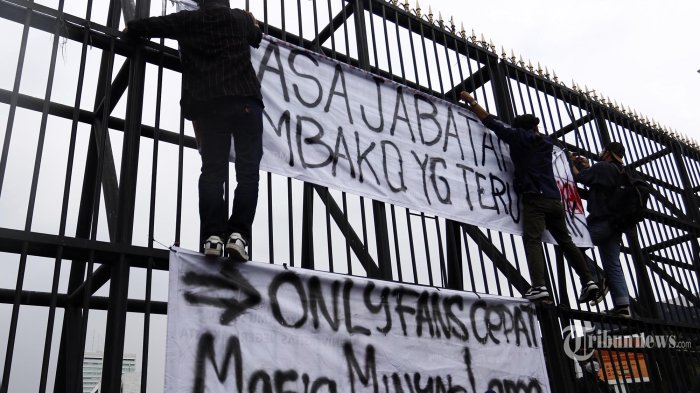 ASA JABATAN
MBAKO YG TERU
→ ONLYFANS CEPAT
MAFIA MINYAK
Tribunnews.com